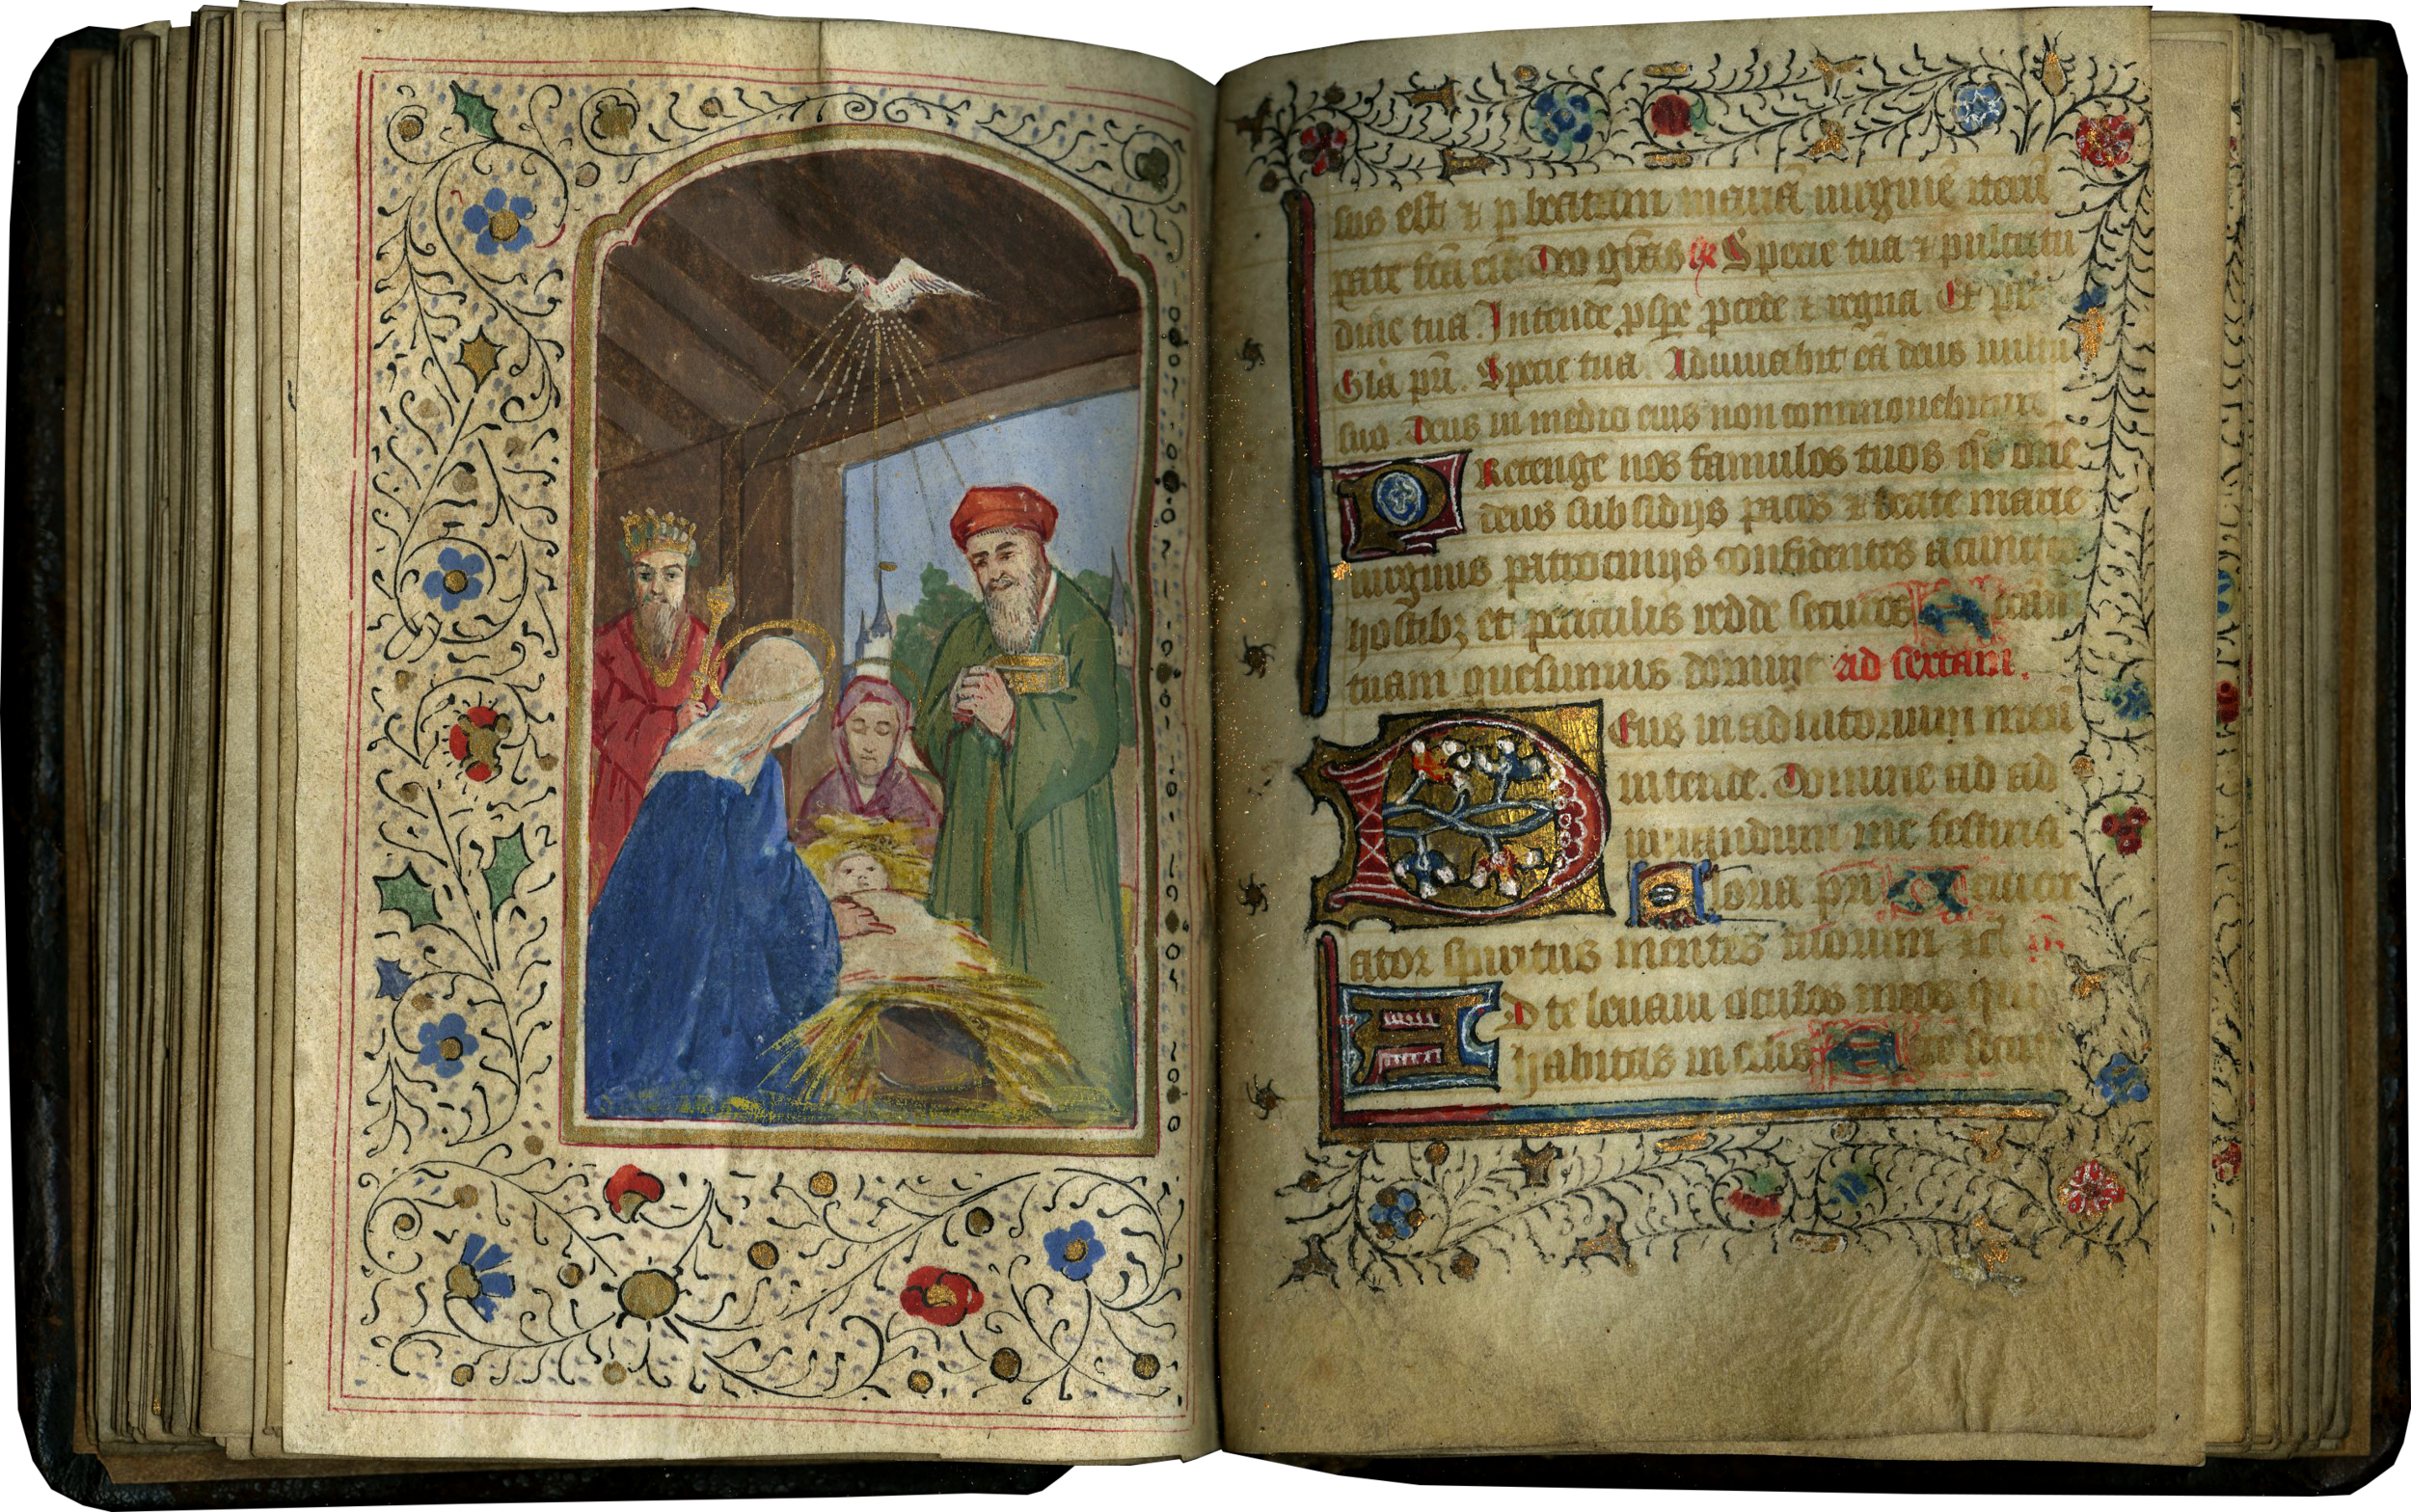 sus est ⁊ p beatam mariā uirginē iterū
pate fcā est Deo grās Specie tua ⁊ pulcritu
dine tua. Intende pspe pcede ⁊ regna Et
Glā pri. Specie tua. Adiuuabit eā deus uultu
suo. Deus in medio eius non commouebitur
PRotenge nos famulos tuos
deus subsidijs pacis ⁊ beate marie
uirginis patrocinijs confidentes a cunctis
hostibz et periculis redde securos
tuam quesumus domine ad sextam.
DEus in adiutorium meū
intende. Domine ad ad
iuuandum me festina
Gloria pri
ator spiritus mentes tuorum
AD te leuaui oculos meos qui
habitas in celis Ecce sicut